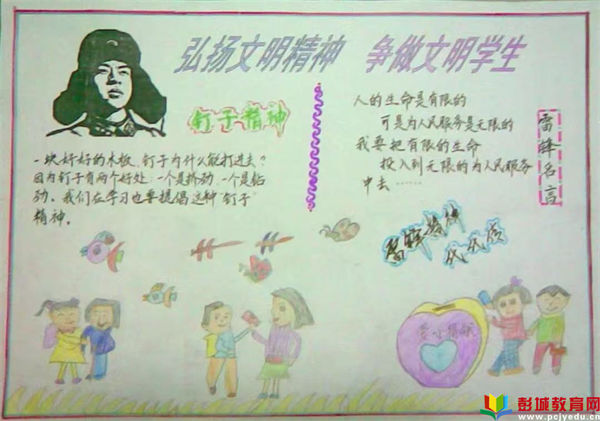 弘扬文明精神 争做文明学生
钉子精神
一块好好的木板、钉子为什么能打进去?
因为钉子有两个好处:一个是挤劲、一个是钻
劲。我们在学习也要提倡这种"钉子"
精神。
人的生命是有限的
可是为人民服务是无限的
我要把有限的生命
投入到无限的为人民服务
中去……
雷锋名言
雷锋精神
代代传
爱心捐献
彭城教育网
www.pcjyedu.cn